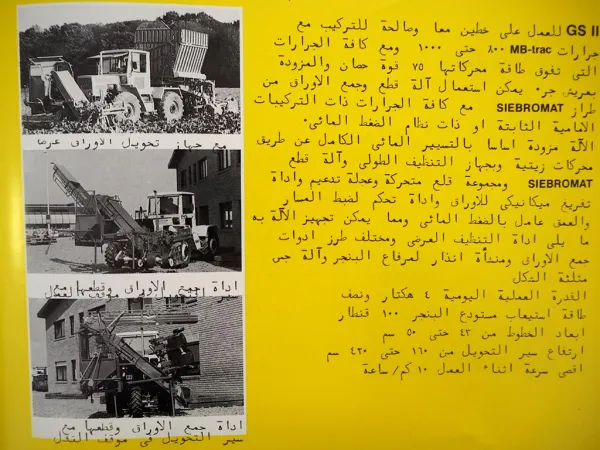 GS II للعمل على خطين معا وصالحة للتركيب مع
جرارات MB-trac ٨٠٠ حتى ١٠٠٠ ومع كافة الجرارات
التي تفوق طاقة محركاتها ٧٥ قوة حصان والمزودة
بعريش جر. يمكن استعمال آلة قطع وجمع الاوراق من
طراز SIEBROMAT مع كافة الجرارات ذات التركيبات
الامامية الثابتة او ذات نظام الضغط المائى.
الآلة مزودة اساسا بالتسيير المائى الكامل عن طريق
محركات زيتية وبجهاز التنظيف الطولى وآلة قطع
SIEBROMAT ومجموعة قلع متحركة وعجلة تدعيم واداة
تفريغ ميكانيكى للاوراق واداة تحكم لضبط المسار
والعمق عامل بالضغط المائى ومما يمكن تجهيز الآلة به
ما يلى اداة التنظيف العرضى ومختلف طرز ادوات
جمع الاوراق ومنشأة انذار لمرفاع البنجر وآلة جى
مثلثة الشكل
القدرة العملية اليومية ٤ هكتار ونصف
طاقة استيعاب مستودع البنجر ١٠٠ قنطار
ابعاد الخطوط من ٤٣ حتى ٥٠ سم
ارتفاع سير التحويل من ١٦٠ حتى ٤٢٠ سم
اقصى سرعة اثناء العمل ١٠ كم/ساعة
مع جهاز تحويل الاوراق عرضا
اداة جمع الاوراق وقطعها مع
سير التحويل فى موقف العمل
اداة جمع الاوراق وقطعها مع
سير التحويل فى موقف النقل